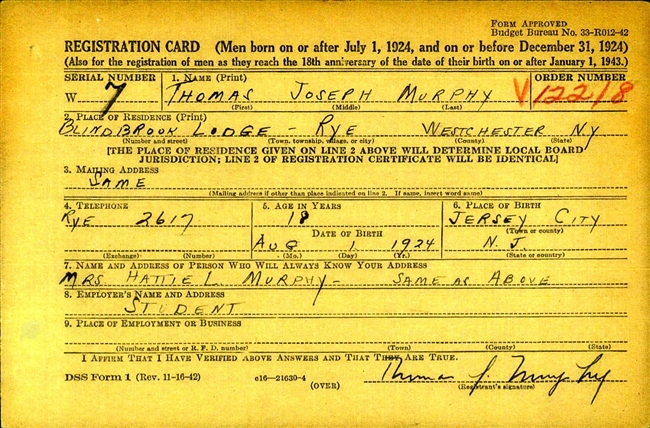 FORM APPROVED
Budget Bureau No. 33-R012-42
REGISTRATION CARD (Men born on or after July 1, 1924, and on or before December 31, 1924)
(Also for the registration of men as they reach the 18th anniversary of the date of their birth on or after January 1, 1943.)
SERIAL NUMBER 1. NAME (Print) ORDER NUMBER
W 7 THOMAS JOSEPH MURPHY V12218
(First) (Middle) (Last)
2. PLACE OF RESIDENCE (Print)
BLINDBROOK LODGE - RYE WESTCHESTER NY
(Number and street) (Town, township, village, or city) (County) (State)
[THE PLACE OF RESIDENCE GIVEN ON LINE 2 ABOVE WILL DETERMINE LOCAL BOARD
JURISDICTION; LINE 2 OF REGISTRATION CERTIFICATE WILL BE IDENTICAL]
3. MAILING ADDRESS
SAME
(Mailing address if other than place indicated on line 2. If same, insert word same)
4. TELEPHONE 5. AGE IN YEARS 6. PLACE OF BIRTH
RYE 2617 18 JERSEY CITY
DATE OF BIRTH (Town or county)
AUG 1 1924 N.J.
(Exchange) (Number) (Mo.) (Day) (Yr.) (State or country)
7. NAME AND ADDRESS OF PERSON WHO WILL ALWAYS KNOW YOUR ADDRESS
MRS HATTIE L. MURPHY - SAME AS ABOVE
8. EMPLOYER'S NAME AND ADDRESS
STUDENT
9. PLACE OF EMPLOYMENT OR BUSINESS
(Number and street or R. F. D. number) (Town) (County) (State)
I AFFIRM THAT I HAVE VERIFIED ABOVE ANSWERS AND THAT THEY ARE TRUE.
DSS Form 1 (Rev. 11-16-42) e16—21630-4 Thomas J. Murphy
(OVER) (Registrant's signature)